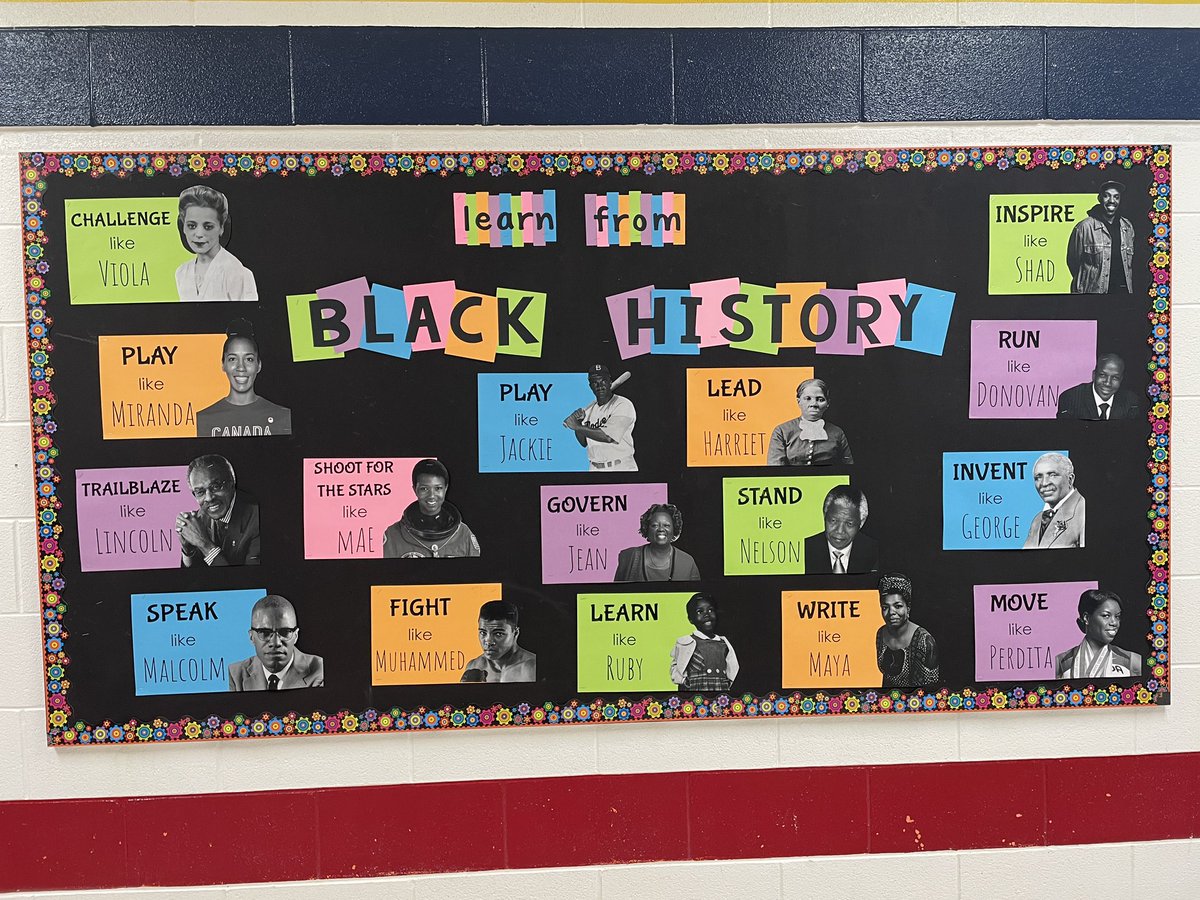 learn from
BLACK HISTORY
CHALLENGE
like
VIOLA
INSPIRE
like
SHAD
PLAY
like
MIRANDA
CANADA
PLAY
like
JACKIE
B
LEAD
like
HARRIET
RUN
like
DONOVAN
TRAILBLAZE
like
LINCOLN
SHOOT FOR
THE STARS
like
MAE
GOVERN
like
JEAN
STAND
like
NELSON
INVENT
like
GEORGE
SPEAK
like
MALCOLM
FIGHT
like
MUHAMMED
LEARN
like
RUBY
WRITE
like
MAYA
MOVE
like
PERDITA